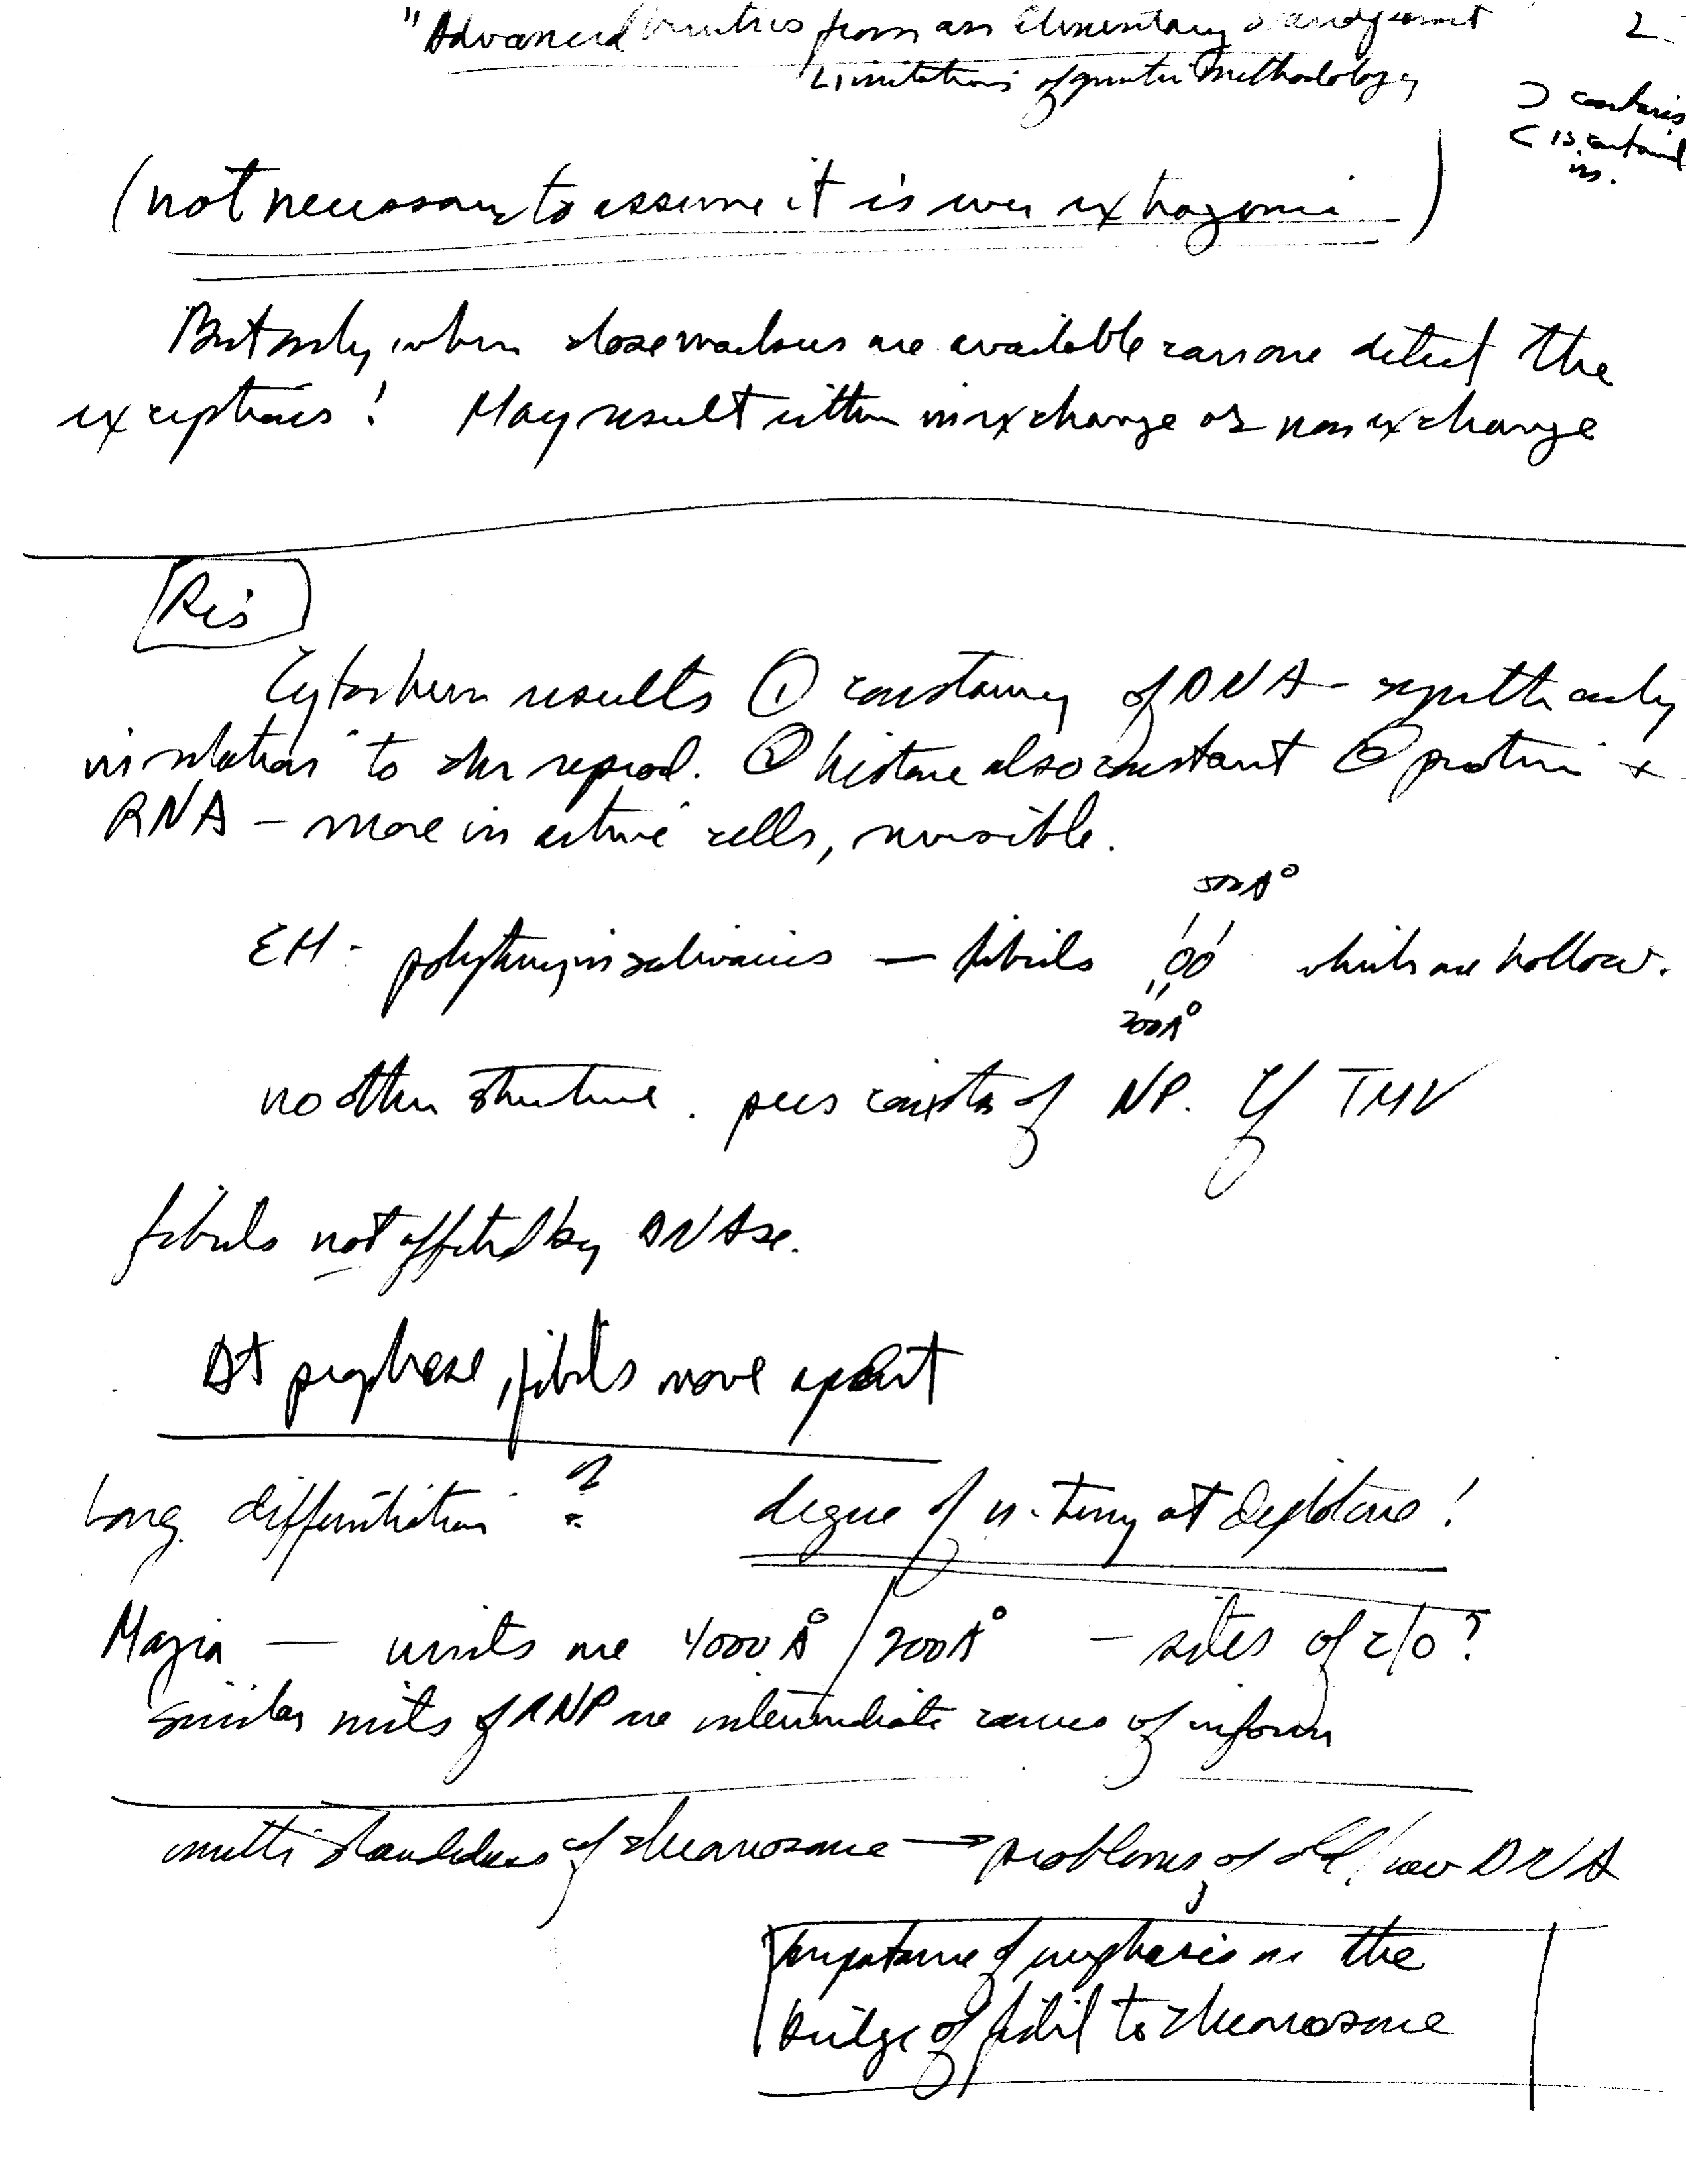 "Advanced Genetics from an Elementary Standpoint" 2.
Limitations of genetic methodology
⊃ contains
⊂ is contained
in.
(not necessary to assume it is ever extragenic)
But only when close markers are available can one detect the
exceptions! May result either in exchange or non exchange
Ris
Cytochem results ① constancy of DNA - synth early
in relation to chr reprod. ② histone also constant ③ protein +
RNA - more in active cells, invisible.
500A°
EM - polyteny in salivaries — fibrils which are hollow.
200A°
no other structure. consists of NP. Cf TMV
fibrils not affected by DNAse.
At prophase, fibrils move apart
Long. differentiation ? degree of n-teny at diplotene!
Mazia — units are 4000 A° / 200A° — sites of c/o?
similar units of RNP are intermediate carriers of inform
multi strandedness of chromosome → problems of old/new DNA
Importance of emphasis on the
bridge of fibril to chromosome